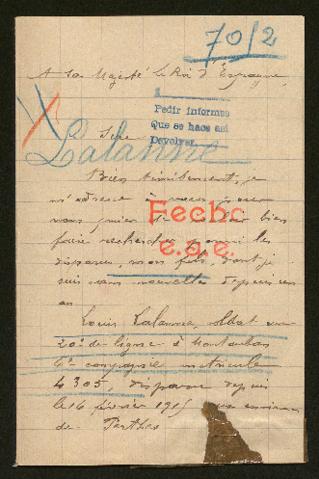 70/2
A Sa Majesté le Roi d'Espagne,
1
Pedir informes
Que se hace así
Devolver.
Sire
Lalanne
Bien timidement, je
m'adresse à vous pour
vous prier de bien
faire rechercher parmi les
disparus, mon fils, dont je
suis sans nouvelles depuis un
an
Fecho
e.g.e.
Louis Lalanne, soldat au
20e de ligne à Montauban
6e compagnie matricule
4305, disparu depuis
le 16 février 1915 aux environs
de Perthes